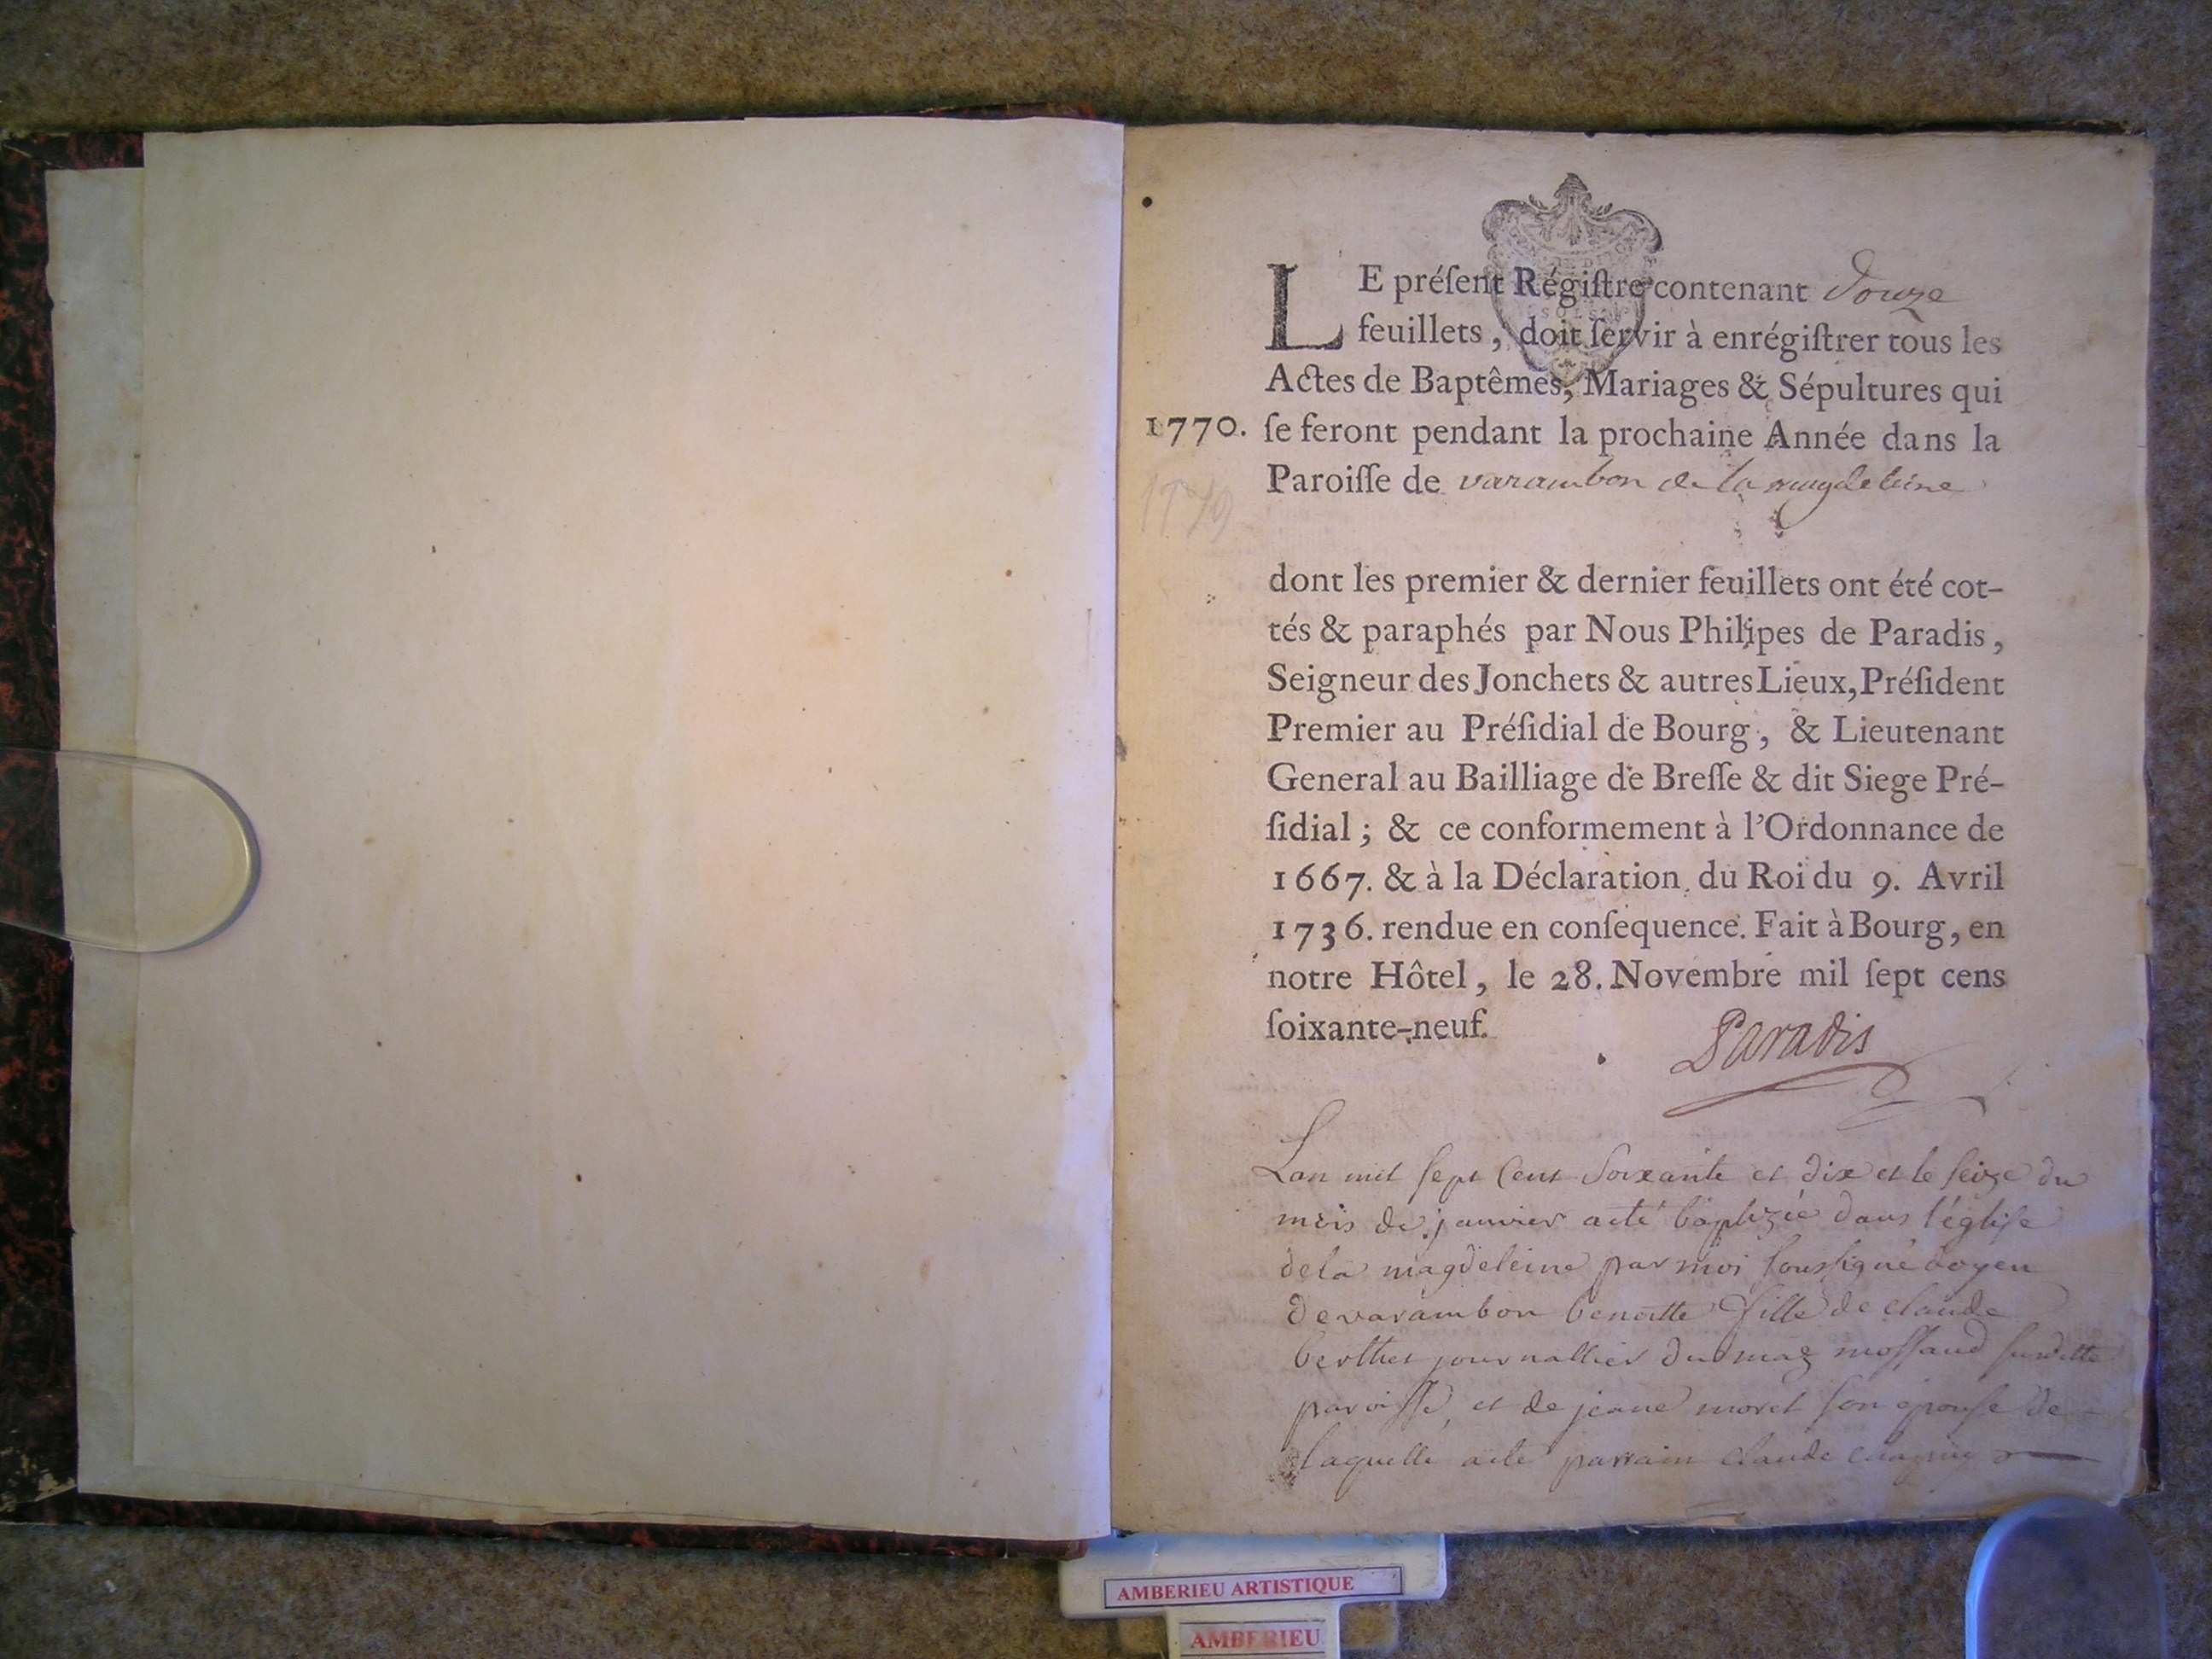 LE préſent Régiſtre contenant douze
feuillets, doit ſervir à enrégiſtrer tous les
Actes de Baptêmes, Mariages & Sépultures qui
1770. ſe feront pendant la prochaine Année dans la
Paroiſſe de varambon de la magdeleine
dont les premier & dernier feuillets ont été cot-
tés & paraphés par Nous Philipes de Paradis,
Seigneur des Jonchets & autres Lieux, Préſident
Premier au Préſidial de Bourg, & Lieutenant
General au Bailliage de Breſſe & dit Siege Pré-
ſidial; & ce conformement à l'Ordonnance de
1667. & à la Déclaration du Roi du 9. Avril
1736. rendue en conſequence. Fait à Bourg, en
notre Hôtel, le 28. Novembre mil ſept cens
ſoixante-neuf.
Paradis
Lan mil sept cent soixante et dix et le seize du
mois de janvier a été baptizée dans l'église
de la magdeleine par moi soussigné doyen
de varambon benoitte fille de claude
berthet journallier du maz mossaud susditte
paroisse, et de jeane morel son épouse de
laquelle a eté parrain claude
AMBERIEU ARTISTIQUE
AMBERIEU